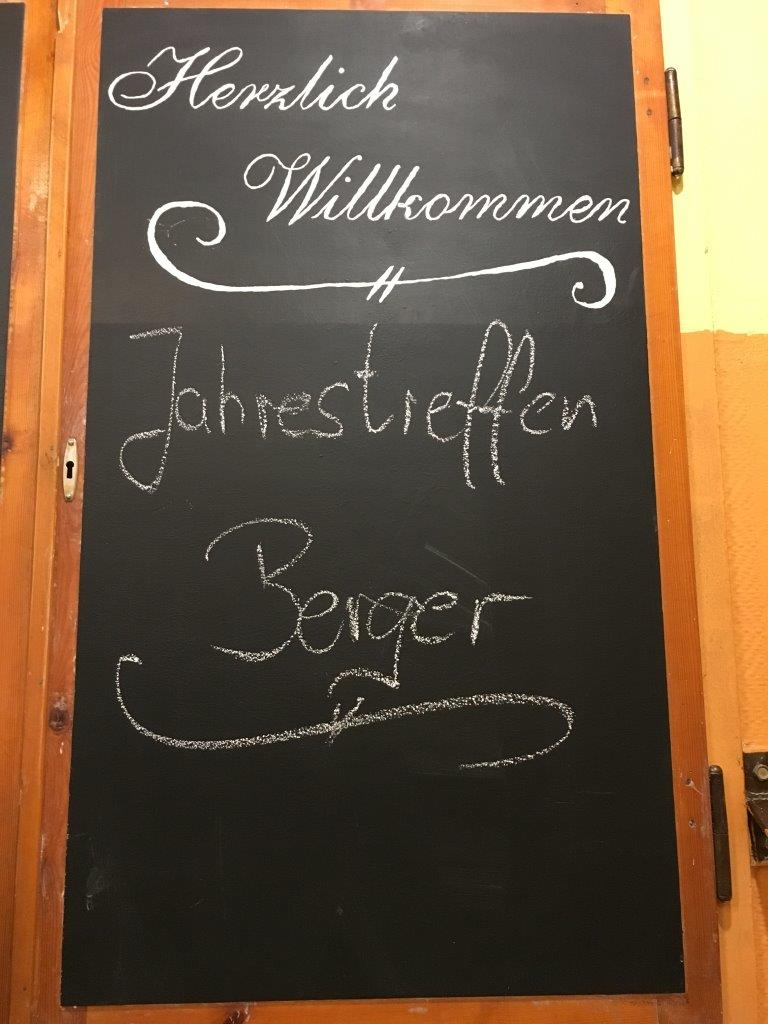 Herzlich
Willkommen
Jahrestreffen
Berger